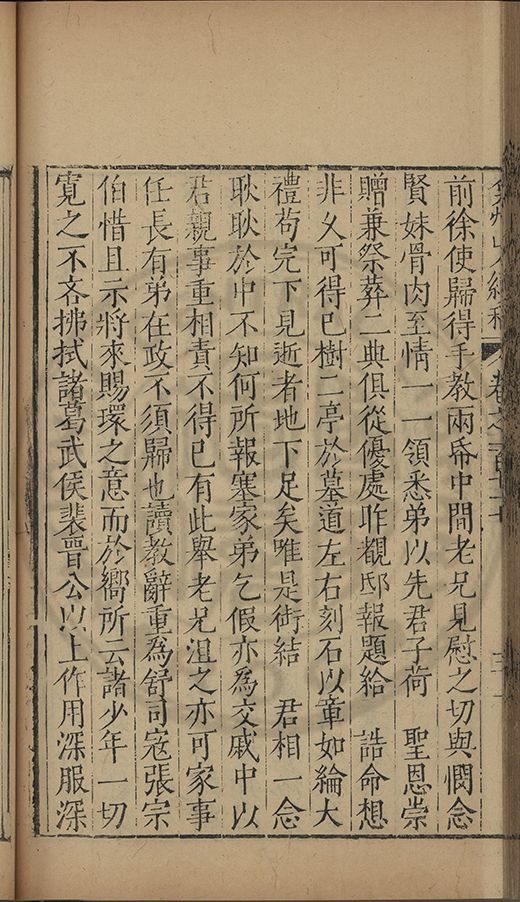 前徐使歸得手教兩帋中間老兄見慰之切與憫念
賢妹骨肉至情一一領悉弟以先君子荷　聖恩崇
贈兼祭葬二典俱從優處昨覩邸報題給　誥命想
非乂可得已樹二亭於墓道左右刻石以章如綸大
禮苟完下見逝者地下足矣唯是銜結　君相一念
耿耿於中不知何所報塞家弟乞假亦為交戚中以
君親事重相責不得已有此舉老兄沮之亦可家事
任長有弟在政不須歸也讀教辭重為舒司寇張宗
伯惜且示將來賜環之意而於嚮所云諸少年一切
寬之不吝拂拭諸葛武侯裴晉公以上作用深服深